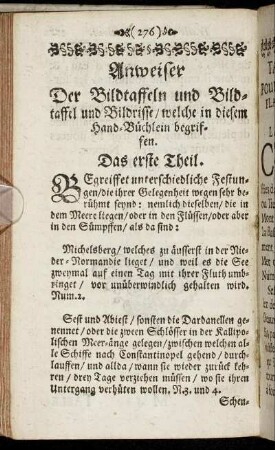 (276)
Anweiser
Der Bildtaffeln und Bild-
taffel und Bildrisse/ welche in diesem
Hand-Büchlein begrif-
fen.
Das erste Theil.
BEgreiffet unterschiedliche Festun-
gen/die ihrer Gelegenheit wegen sehr be-
rühmt seynd: nemlich dieselben/ die in
dem Meere liegen/oder in den Flüssen/oder aber
in den Sümpffen/ als da sind:
Michelsberg/ welches zu äusserst in der Nie-
der-Normandie lieget/ und weil es die See
zweymal auf einen Tag mit ihrer Fluth umb-
ringet/ vor unüberwindlich gehalten wird.
Num.2.
Sest und Abiest/ sonsten die Dardanellen ge-
nennet/ oder die zween Schlösser in der Kallipo-
lischen Meer-änge gelegen/ zwischen welchen al-
le Schiffe nach Constantinopel gehend/ durch-
lauffen/ und allda/ wann sie wieder zurück keh-
ren/ drey Tage verziehen müssen/ wo sie ihren
Untergang verhüten wollen. N.3. und 4.
Schen-